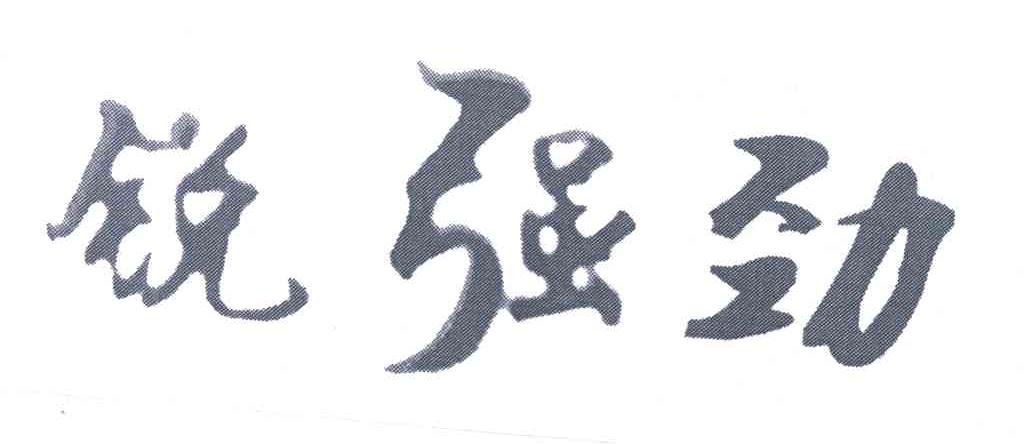 锐强劲